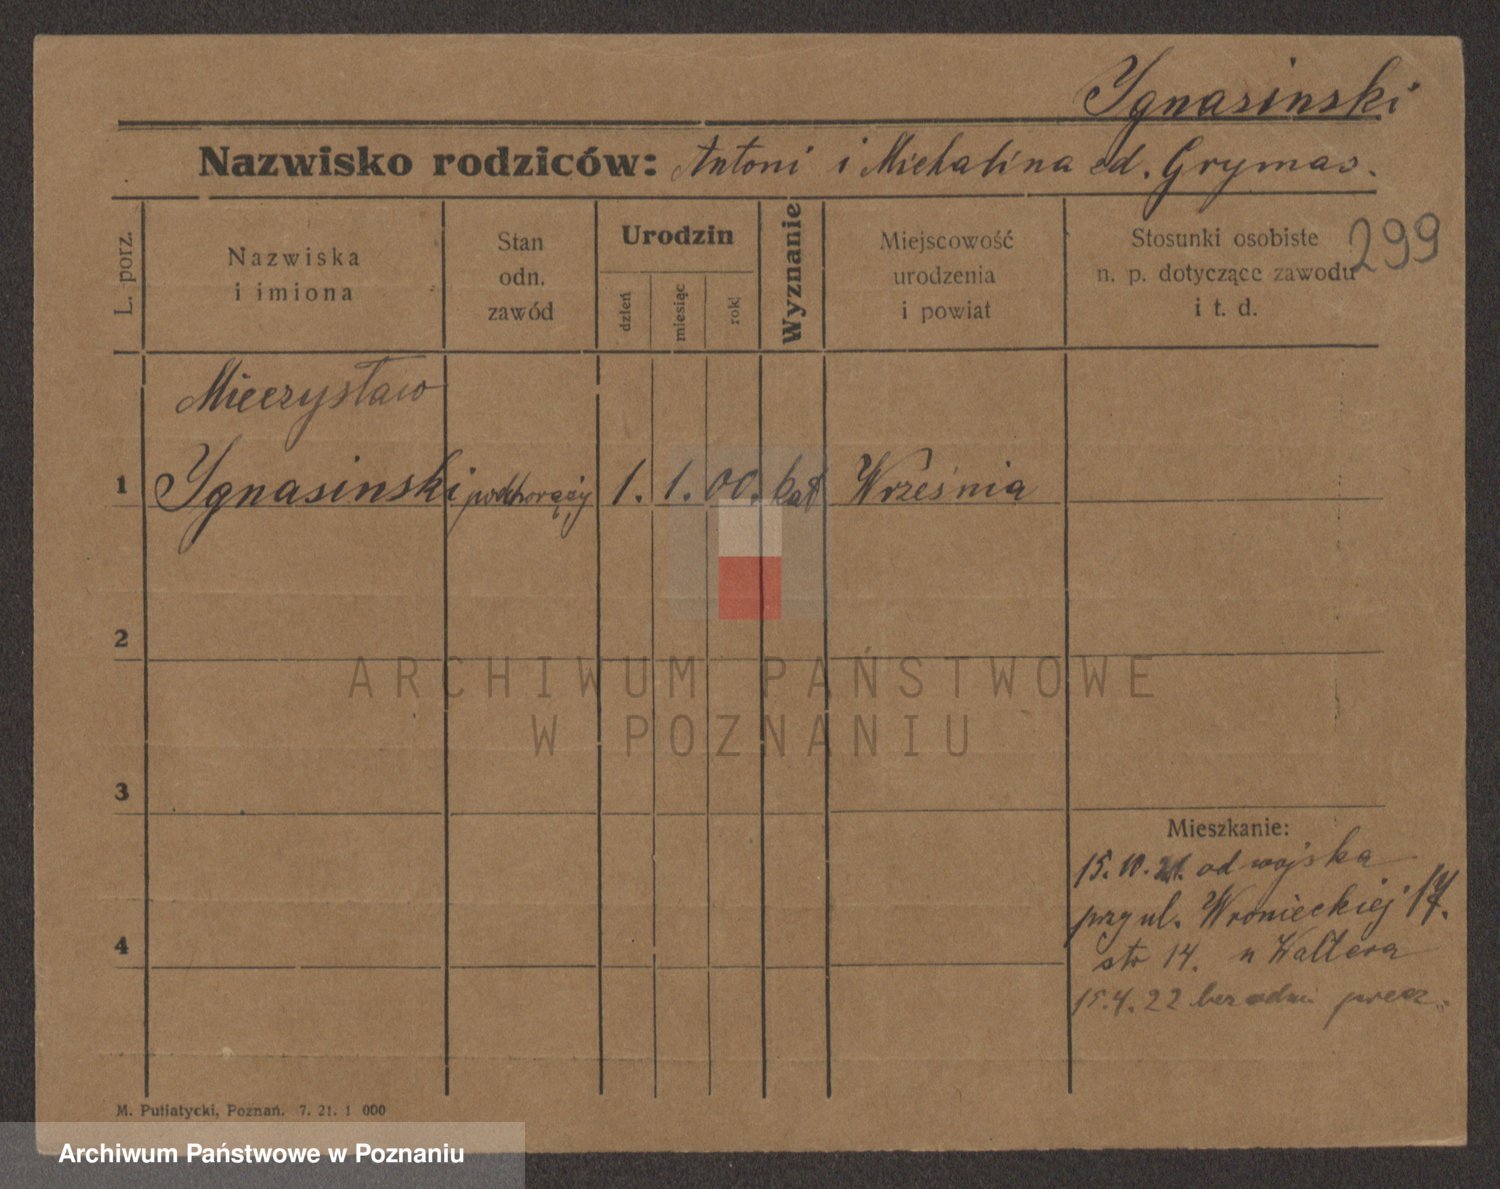 Ygnasinski
Nazwisko rodziców: Antoni i Michalina Grymas.
299
L. porz.
Nazwiska
i imiona
Stan
odn.
zawód
Urodzin
dzień
miesiąc
rok
Wyznanie
Miejscowość
urodzenia
i powiat
Stosunki osobiste
n. p. dotyczące zawodu
i t. d.
Mieczysław
1 Ygnasinski podchorąży 1. 1. 00. kat Września
2
3
4
Mieszkanie:
15. 10. 21. od wojska
przy ul. Wronieckiej 17.
str 14. u Waltera
15.4.22 bez odm.
M. Putiatycki, Poznań. 7. 21. 1 000
ARCHIWUM PAŃSTWOWE
W POZNANIU
Archiwum Państwowe w Poznaniu